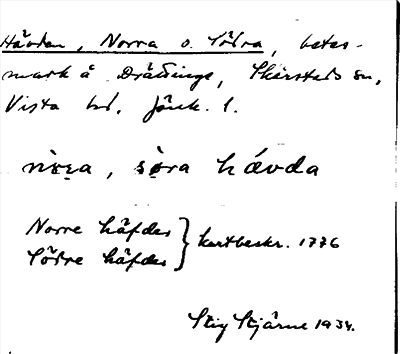 Hävdan, Norra o. Södra, betes-
mark å Drättinge, Skärstads sn,
Vista hd, Jönk. l.
nòra, sö̀ra hávda
Norre häfder
Södre häfder } kartbeskr. 1776
Stig Stjärne 1934.